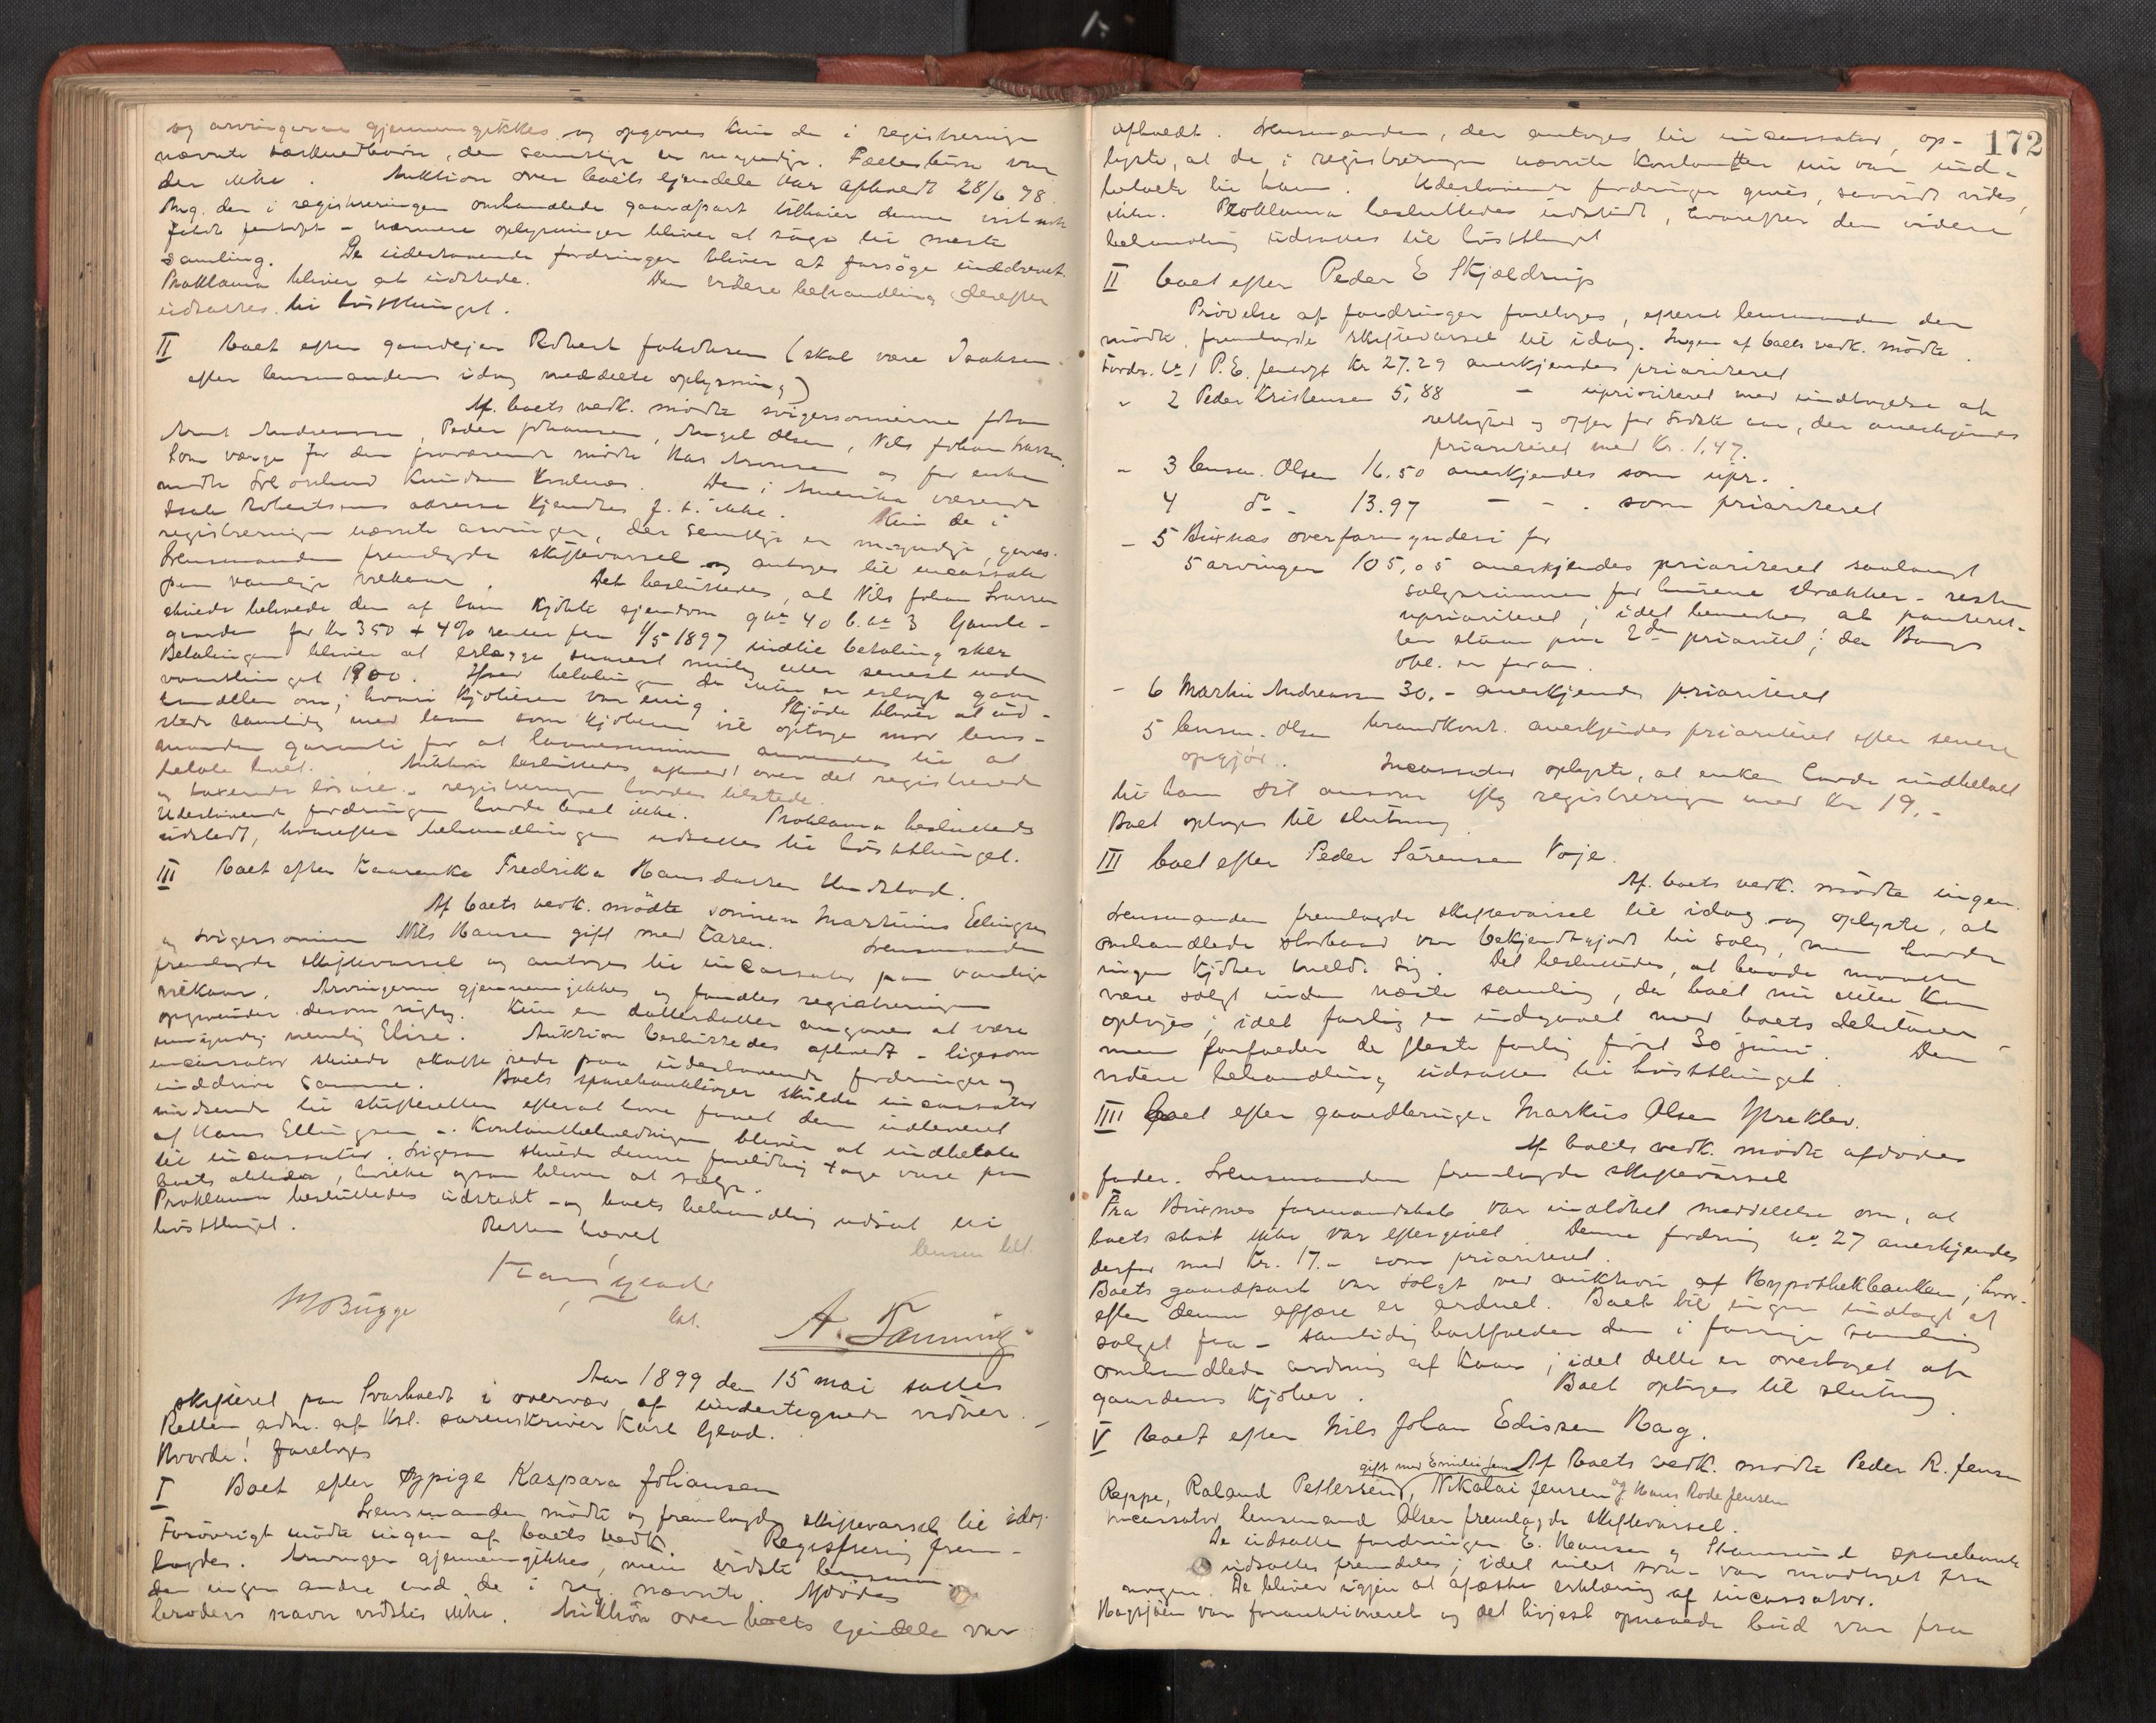 og arvingerne gjennemgikkes og opgaves kun de i registreringen
nævnte særkuldbørn, der samtlige er myndige. Fællesbørn var
der ikke. Auktion over boets ejendele var afholdt 28/6 98.
Ang. den i registreringen omhandlede gaardpart tilhører denne
nærmere oplysninger bliver at søge til næste
samling. De udestaaende fordringer bliver at forsøge inddrevet.
Proklama bliver at udstede. Den videre behandling derefter
udsattes til høstthinget.
II Boet efter gaardejer Robert Jakobsen (skal være Isaksen
efter lensmandens idag meddelte oplysning)
Af boets vedk. mødte svigersønnerne Johan
Arnt Andreassen, Peder Johansen, Angel Olsen, Nils Johan Larsen.
Som værge for den fraværende mødte Kas Aronsen og for enken
mødte Knudsen. Den i Amerika værende
Isak Robertsens adresse kjendtes p. t. ikke. Kun de i
registreringen nævnte arvinger, der samtlige er myndige, gaves.
Lensmanden fremlagde skiftevarsel og antoges til incassator
paa vanlige vilkaar. Det besluttedes, at Nils Johan Larsen
skulde beholde den af ham kjøbte ejendom gno 40 b.no 3 Gamle-
gaarden for Kr 350 + 4% renter fra 1/5 1897 indtil betaling sker
Betalingen bliver at erlægge snarest mulig eller senest inden
vaarthinget 1900. Hvis betalingen da ikke er erlagt gaar
handelen om; hvori kjøberen var enig. Skjøde bliver at ud-
stede samtidig med laan som kjøberen vil optage mod lens-
mandens garanti for at laanesummen anvendes til at
betale boet. Auktion besluttedes afholdt over det registrerede
og taxerede løsøre. registreringen havdes tilstede.
Udestaaende fordringer havde boet ikke. Proklama besluttedes
udstedt, hvorefter behandlingen udsattes til høstthinget.
III Boet efter Kaarenke Fredrika Hansdatter Undstad.
Af boets vedk. mødte sønnen Martinus Ellingsen
og svigersønnen Nils Hansen gift med Karen. Lensmanden
fremlagde skiftevarsel og antoges til incassator paa vanlige
vilkaar. Arvingerne gjennemgikkes og fandtes registreringens
opgivender derom rigtig. Kun en datterdatter angaves at være
umyndig nemlig Elise. Auktion besluttedes afholdt - ligesom
incassator skulde skaffe rede paa udestaaende fordringer og
inddrive samme. Boets sparebankbøger skulde incassator
indsende til skifteretten efterat have faaet dem udleveret
af Hans Ellingsen. Kontantbeholdningen bliver at indbetale
til incassator. Ligesom skulde denne foreløbig tage vare paa
boets aktier, hvilke ogsaa bliver at sælge.
Proklama besluttedes udstedt - og boets behandling udsat til
høstthinget. Retten hævet
Karl Glad
kst.
M Bugge
A. Tanning
Aar 1899 den 15 mai sattes
skifteret paa Svarholdt i overvær af undertegnede vidner.
Retten adm. af kst. sorenskriver Karl Glad.
Hvorda! foretoges
I Boet efter pige Kaspara Johansen
Lensmanden mødte og fremlagde skiftevarsel til idag.
Forøvrigt mødte ingen af boets vedk. Registrering frem-
lagdes. Arvinger gjennemgikkes, men vidste lensman-
den ingen andre end de i reg. nævnte. Afdødes
broders navn vidstes ikke. Auktion over boets ejendele var
172
afholdt. Lensmanden, der antoges til incassator, op-
lyste, at de i registreringen nævnte kontanter nu var ind-
betalt til ham. Udestaaende fordringer gaves, saavidt vides,
ikke. Proklama besluttedes udstedt, hvorefter den videre
behandling udsattes til høstthinget
II boet efter Peder E Skjældrup
Prøvelse af fordringer foretoges, efterat lensmanden der
mødte, fremlagde skiftevarsel til idag. Ingen af boets vedk. mødte.
Fordr. No 1 P. E. Kr 27.29 anerkjendes prioriteret
" 2 Peder Kristensen 5,88 - uprioriteret med undtagelse af
rettighed og offer for sidste aar, der anerkjendes
prioriteret med Kr. 1,47.
" 3 lensm. Olsen 16.50 anerkjendes som upr.
4 do - 13.97 - - . som prioriteret
- 5 Buxnæs overformynderi for
5 arvinger 105,05 anerkjendes prioriteret saalangt
salgssummen for husene strækker - resten
uprioriteret; idet bemærkes at panteret-
ten staar paa 2den prioritet; da Bangs
obl. er foran.
- 6 Martin Andreassen 30.- anerkjendes prioriteret
5 lensm. Olsen brandkont. anerkjendes prioriteret efter senere
opgjør. Incassator oplyste, at enken havde indbetalt
til ham sit ansvar iflg registreringen med Kr 19.-
Boet optages til slutning
III boet efter Peder Sørensen Voje.
Af boets vedk. mødte ingen.
Lensmanden fremlagde skiftevarsel til idag og oplyste, at
omhandlede storbaad var bekjendtgjort til salg, men havde
ingen kjøber meldt sig. Det besluttedes, at baade maatte
være solgt inden næste samling, da boet nu ikke kan
optages; idet forlig er indgaaet med boets debitorer
men forfalder de fleste forlig først 30 juni. Den
videre behandling udsattes til høstthinget.
IIII Boet efter gaardbruger Markus Olsen Ystrekler.
Af boets vedk. mødte afdødes
fader. Lensmanden fremlagde skiftevarsel
Fra Buxnæs formandskab var indløbet meddelelse om, at
boets skat ikke var eftergivet. Denne fordring No 27 anerkjendes
derfor med Kr. 17.- som prioriteret.
Boets gaardpart var solgt ved auktion af Hypothekbanken; hvor-
efter denne affære er ordnet. Boet vil ingen indtægt af
salget faa - samtidig bortfalder den i forrige samling
omhandlede ordning af kaar; idet dette er overtaget af
gaardens kjøber. Boet optoges til slutning
V Boet efter Nils Johan Edissen Hag.
Af boets vedk. mødte Peder R. Jensen
Reppe, Roland Pettersen, gift med Emilie Jens Nikolai Jensen og Hans Rode Jensen
Incassator lensmand Olsen fremlagde skiftevarsel.
De udsatte fordringer E. Hansen og Stamsund sparebank
udsattes fremdeles; idet intet svar var modtaget fra
nogen. De bliver igjen at afæske erklæring af incassator.
Hagsjøen var forauktioneret og det højest opnaaede bud var fra